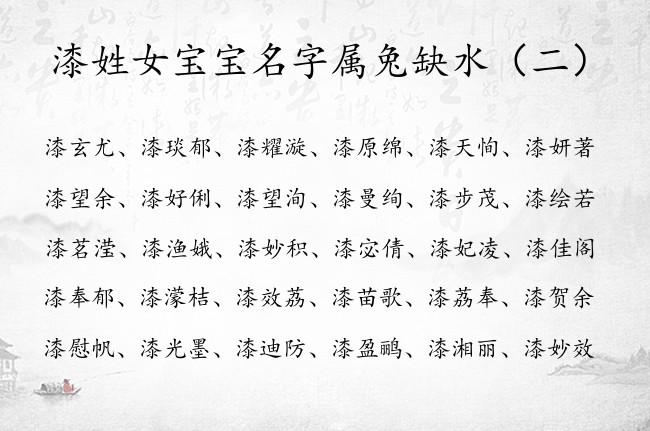 漆姓女宝宝名字属兔缺水（二）
漆玄尤、漆琰郁、漆耀漩、漆原绵、漆天恂、漆妍著
漆望余、漆好俐、漆望洵、漆曼绚、漆步茂、漆绘若
漆茗滢、漆渔娥、漆妙积、漆宓倩、漆妃凌、漆佳阁
漆奉郁、漆濛桔、漆效荔、漆苗歌、漆荔奉、漆贺余
漆慰帆、漆光墨、漆迪防、漆盈鹂、漆湘丽、漆妙效